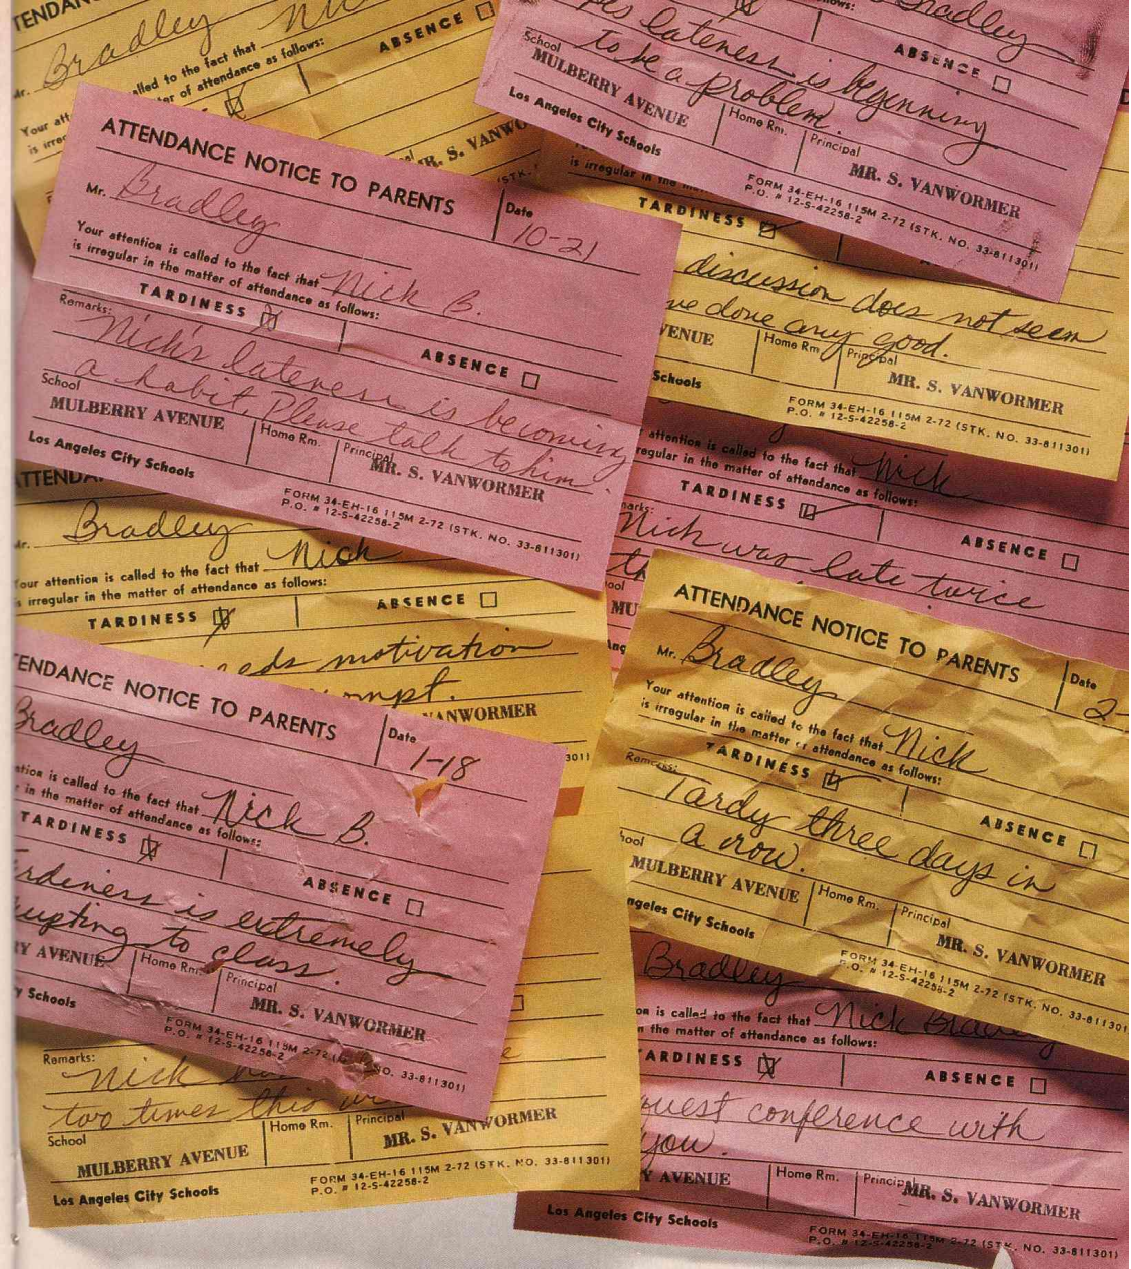 Bradley
ABSENCE
alled to the fact that
tter of attendance as follows:
Your att
is irreg
MR. S. VANWO
Bradley
lateness is beginning
ABSENCE
to be a problem.
School
MULBERRY AVENUE
Home Rm.
Principal
MR. S. VANWORMER
Los Angeles City Schools
FORM 34-EH-16 115M 2-72 (STK. NO. 33-811301)
P.O. # 12-S-42258-2
ATTENDANCE NOTICE TO PARENTS
Mr. Bradley
Date
10-21
Your attention is called to the fact that Nick B.
is irregular in the matter of attendance as follows:
TARDINESS
ABSENCE
Remarks: Nick's lateness is becoming
a habit. Please talk to him.
School
MULBERRY AVENUE
Home Rm.
Principal
MR. S. VANWORMER
Los Angeles City Schools
FORM 34-EH-16 115M 2-72 (STK. NO. 33-811301)
P.O. # 12-S-42258-2
TARDINESS
discussion does not seem
ve done any good.
VENUE
Home Rm.
Principal
MR. S. VANWORMER
Schools
FORM 34-EH-16 115M 2-72 (STK. NO. 33-811301)
P.O. # 12-S-42258-2
attention is called to the fact that Nick
regular in the matter of attendance as follows:
TARDINESS
ABSENCE
Nick was late twice
Bradley
Nick
Your attention is called to the fact that
is irregular in the matter of attendance as follows:
TARDINESS
ABSENCE
eds motivation
ompt.
VANWORMER
ATTENDANCE NOTICE TO PARENTS
Mr. Bradley
Date
2-
Your attention is called to the fact that Nick
is irregular in the matter of attendance as follows:
TARDINESS
ABSENCE
Remarks: Tardy three days in
a row.
MULBERRY AVENUE
Home Rm.
Principal
MR. S. VANWORMER
ngeles City Schools
FORM 34-EH-16 115M 2-72 (STK. NO. 33-811301
P.O. # 12-S-42258-2
TENDANCE NOTICE TO PARENTS
Bradley
Date
1-18
ntion is called to the fact that Nick B.
in the matter of attendance as follows:
TARDINESS
ABSENCE
rdiness is extremely
upting to class.
RY AVENUE
Home Rm.
Principal
MR. S. VANWORMER
y Schools
FORM 34-EH-16 115M 2-72
NO. 33-811301)
P.O. # 12-S-42258-2
Remarks:
Nick
two times this
School
MULBERRY AVENUE
Home Rm.
Principal
MR. S. VANWORMER
Los Angeles City Schools
FORM 34-EH-16 115M 2-72 (STK. NO. 33-811301)
P.O. # 12-S-42258-2
Bradley
on is called to the fact that Nick Bradley
the matter of attendance as follows:
TARDINESS
ABSENCE
quest conference with
you.
Y AVENUE
Home Rm.
Principal
MR. S. VANWORMER
Los Angeles City Schools
FORM 34-EH-16 115M 2-72 (STK. NO. 33-811301)
P.O. # 12-S-42258-2